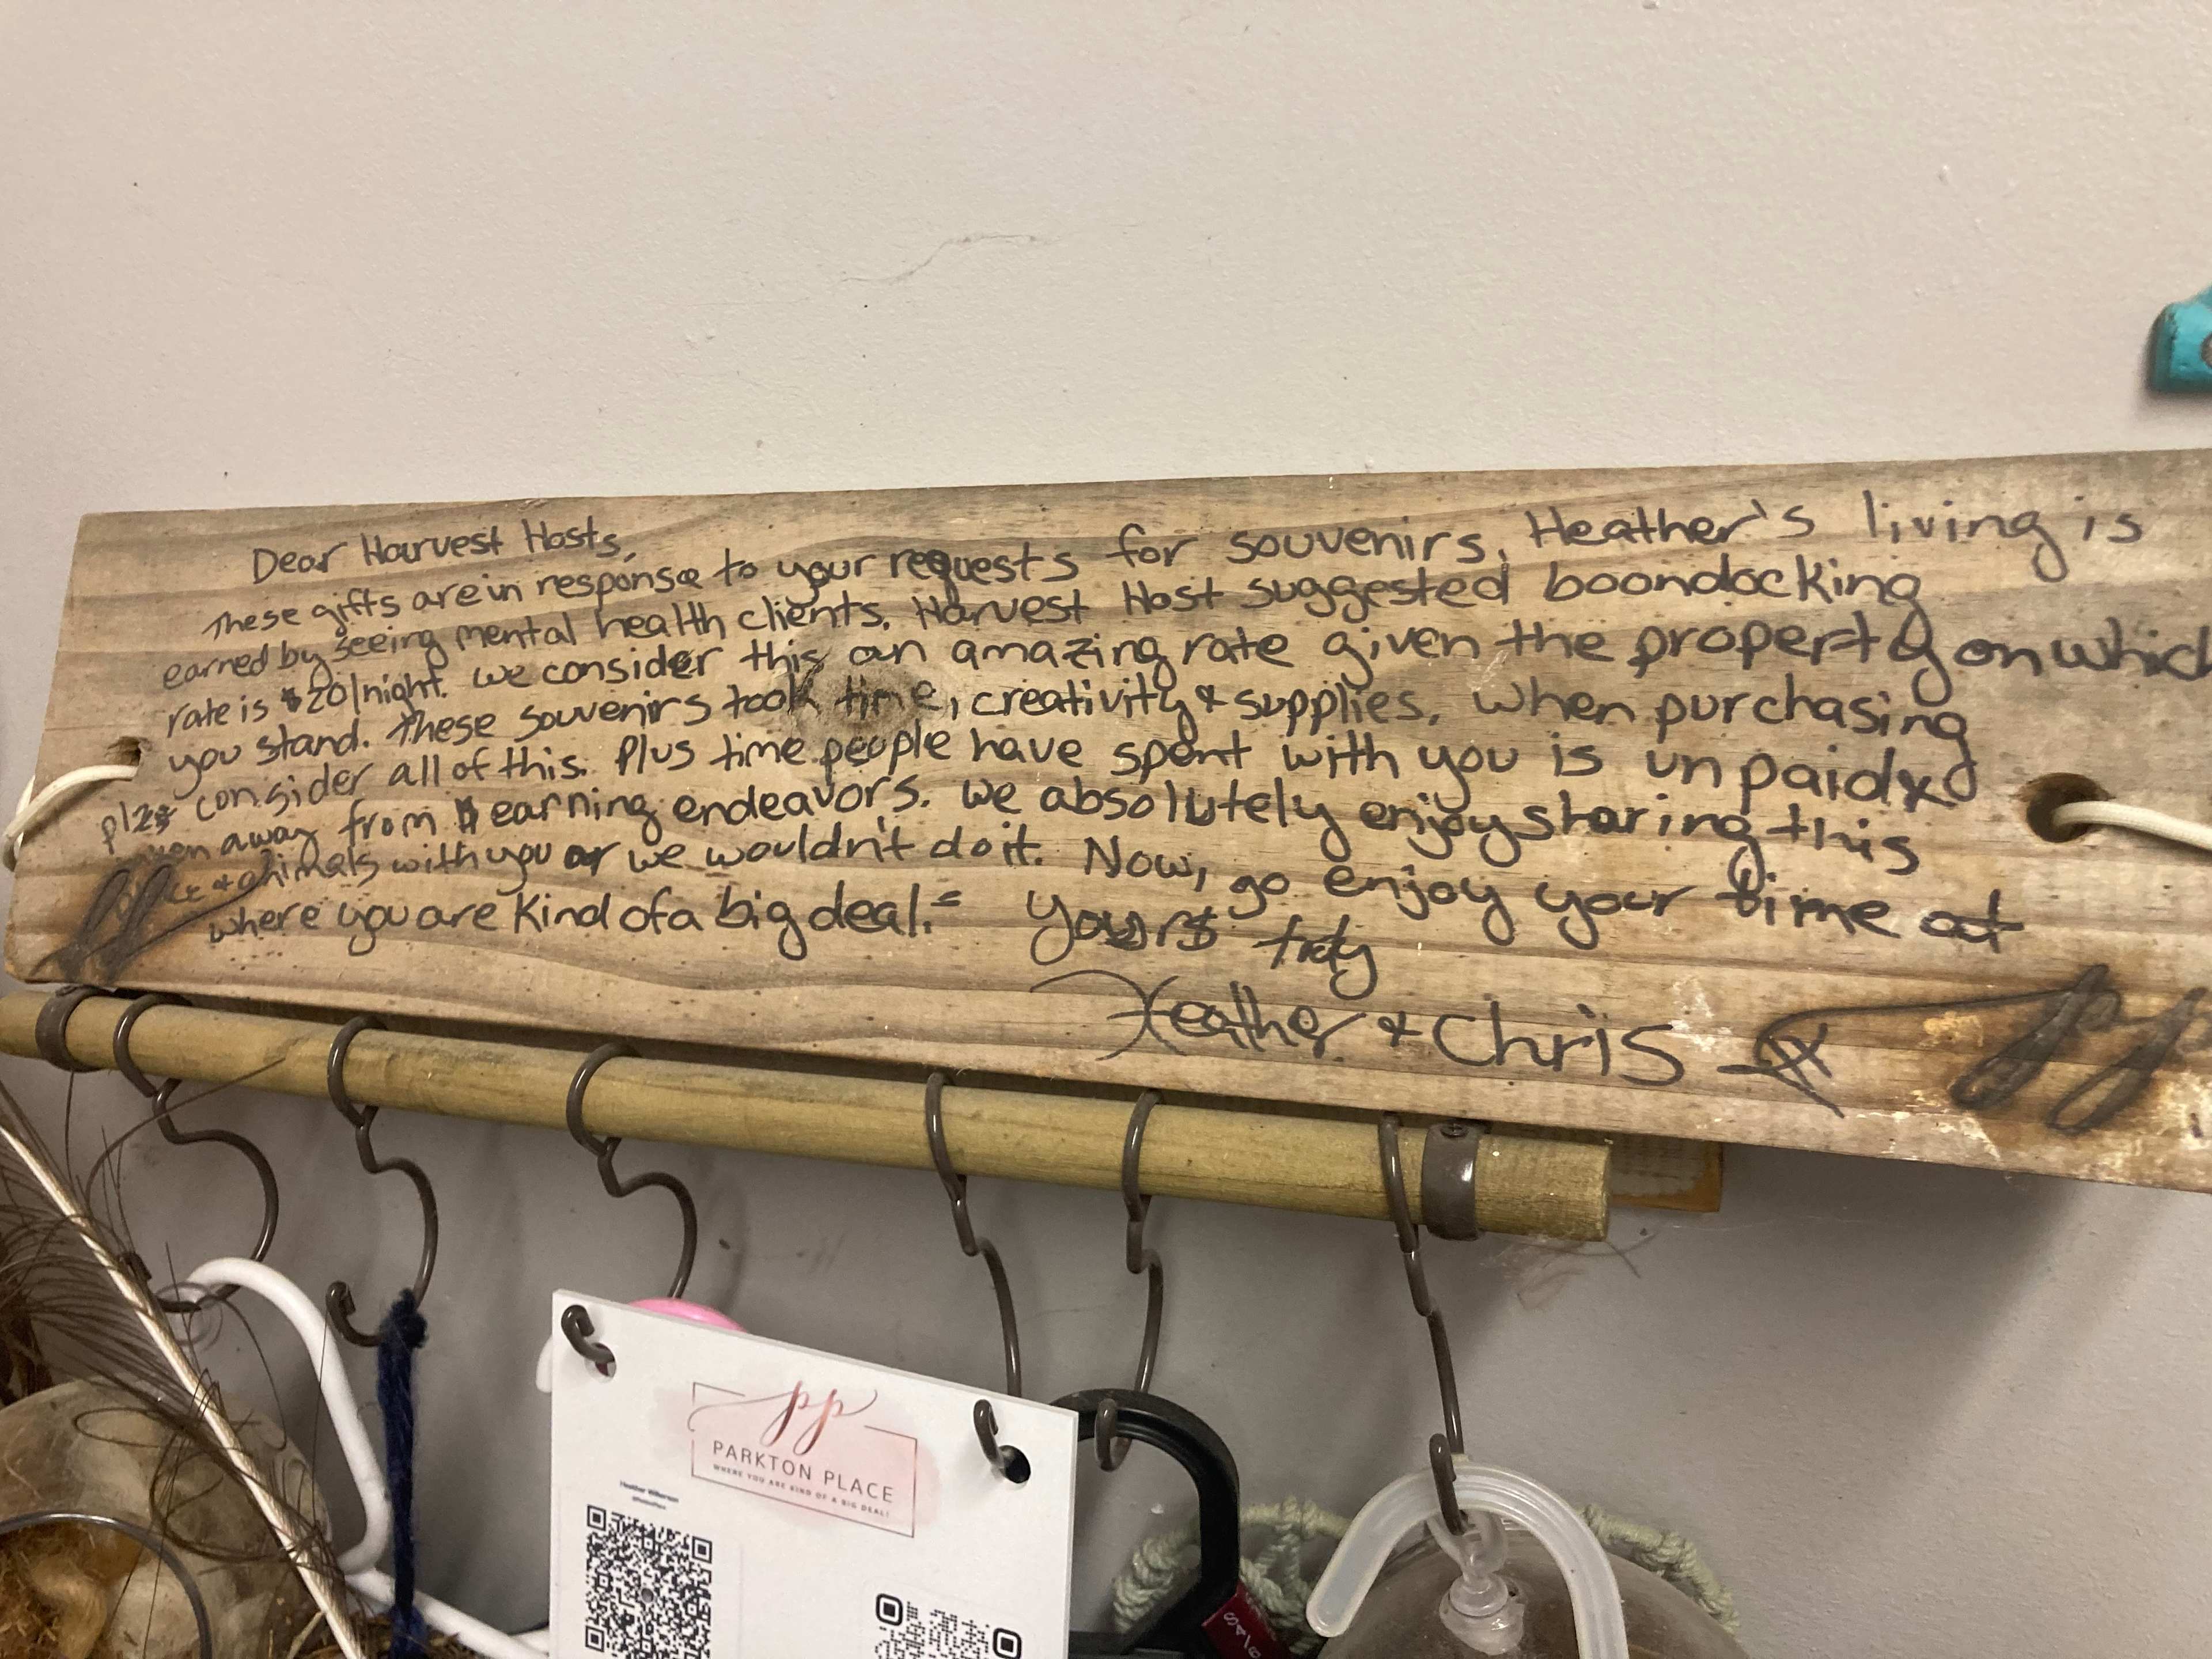 Dear Harvest Hosts,
These gifts are in response to your requests for souvenirs. Heather's living is
earned by seeing mental health clients. Harvest Host suggested boondocking
rate is $20/night. We consider this an amazing rate given the property on which
you stand. These souvenirs took time, creativity & supplies. When purchasing
consider all of this. Plus time people have spent with you is unpaid &
away from $ earning endeavors. We absolutely enjoy sharing this
& animals with you or we wouldn't do it. Now, go enjoy your time at
pp where you are kind of a big deal.
Yours truly
Heather & Chris
pp
pp
PARKTON PLACE
WHERE YOU ARE KIND OF A BIG DEAL!
Heather Wilkerson